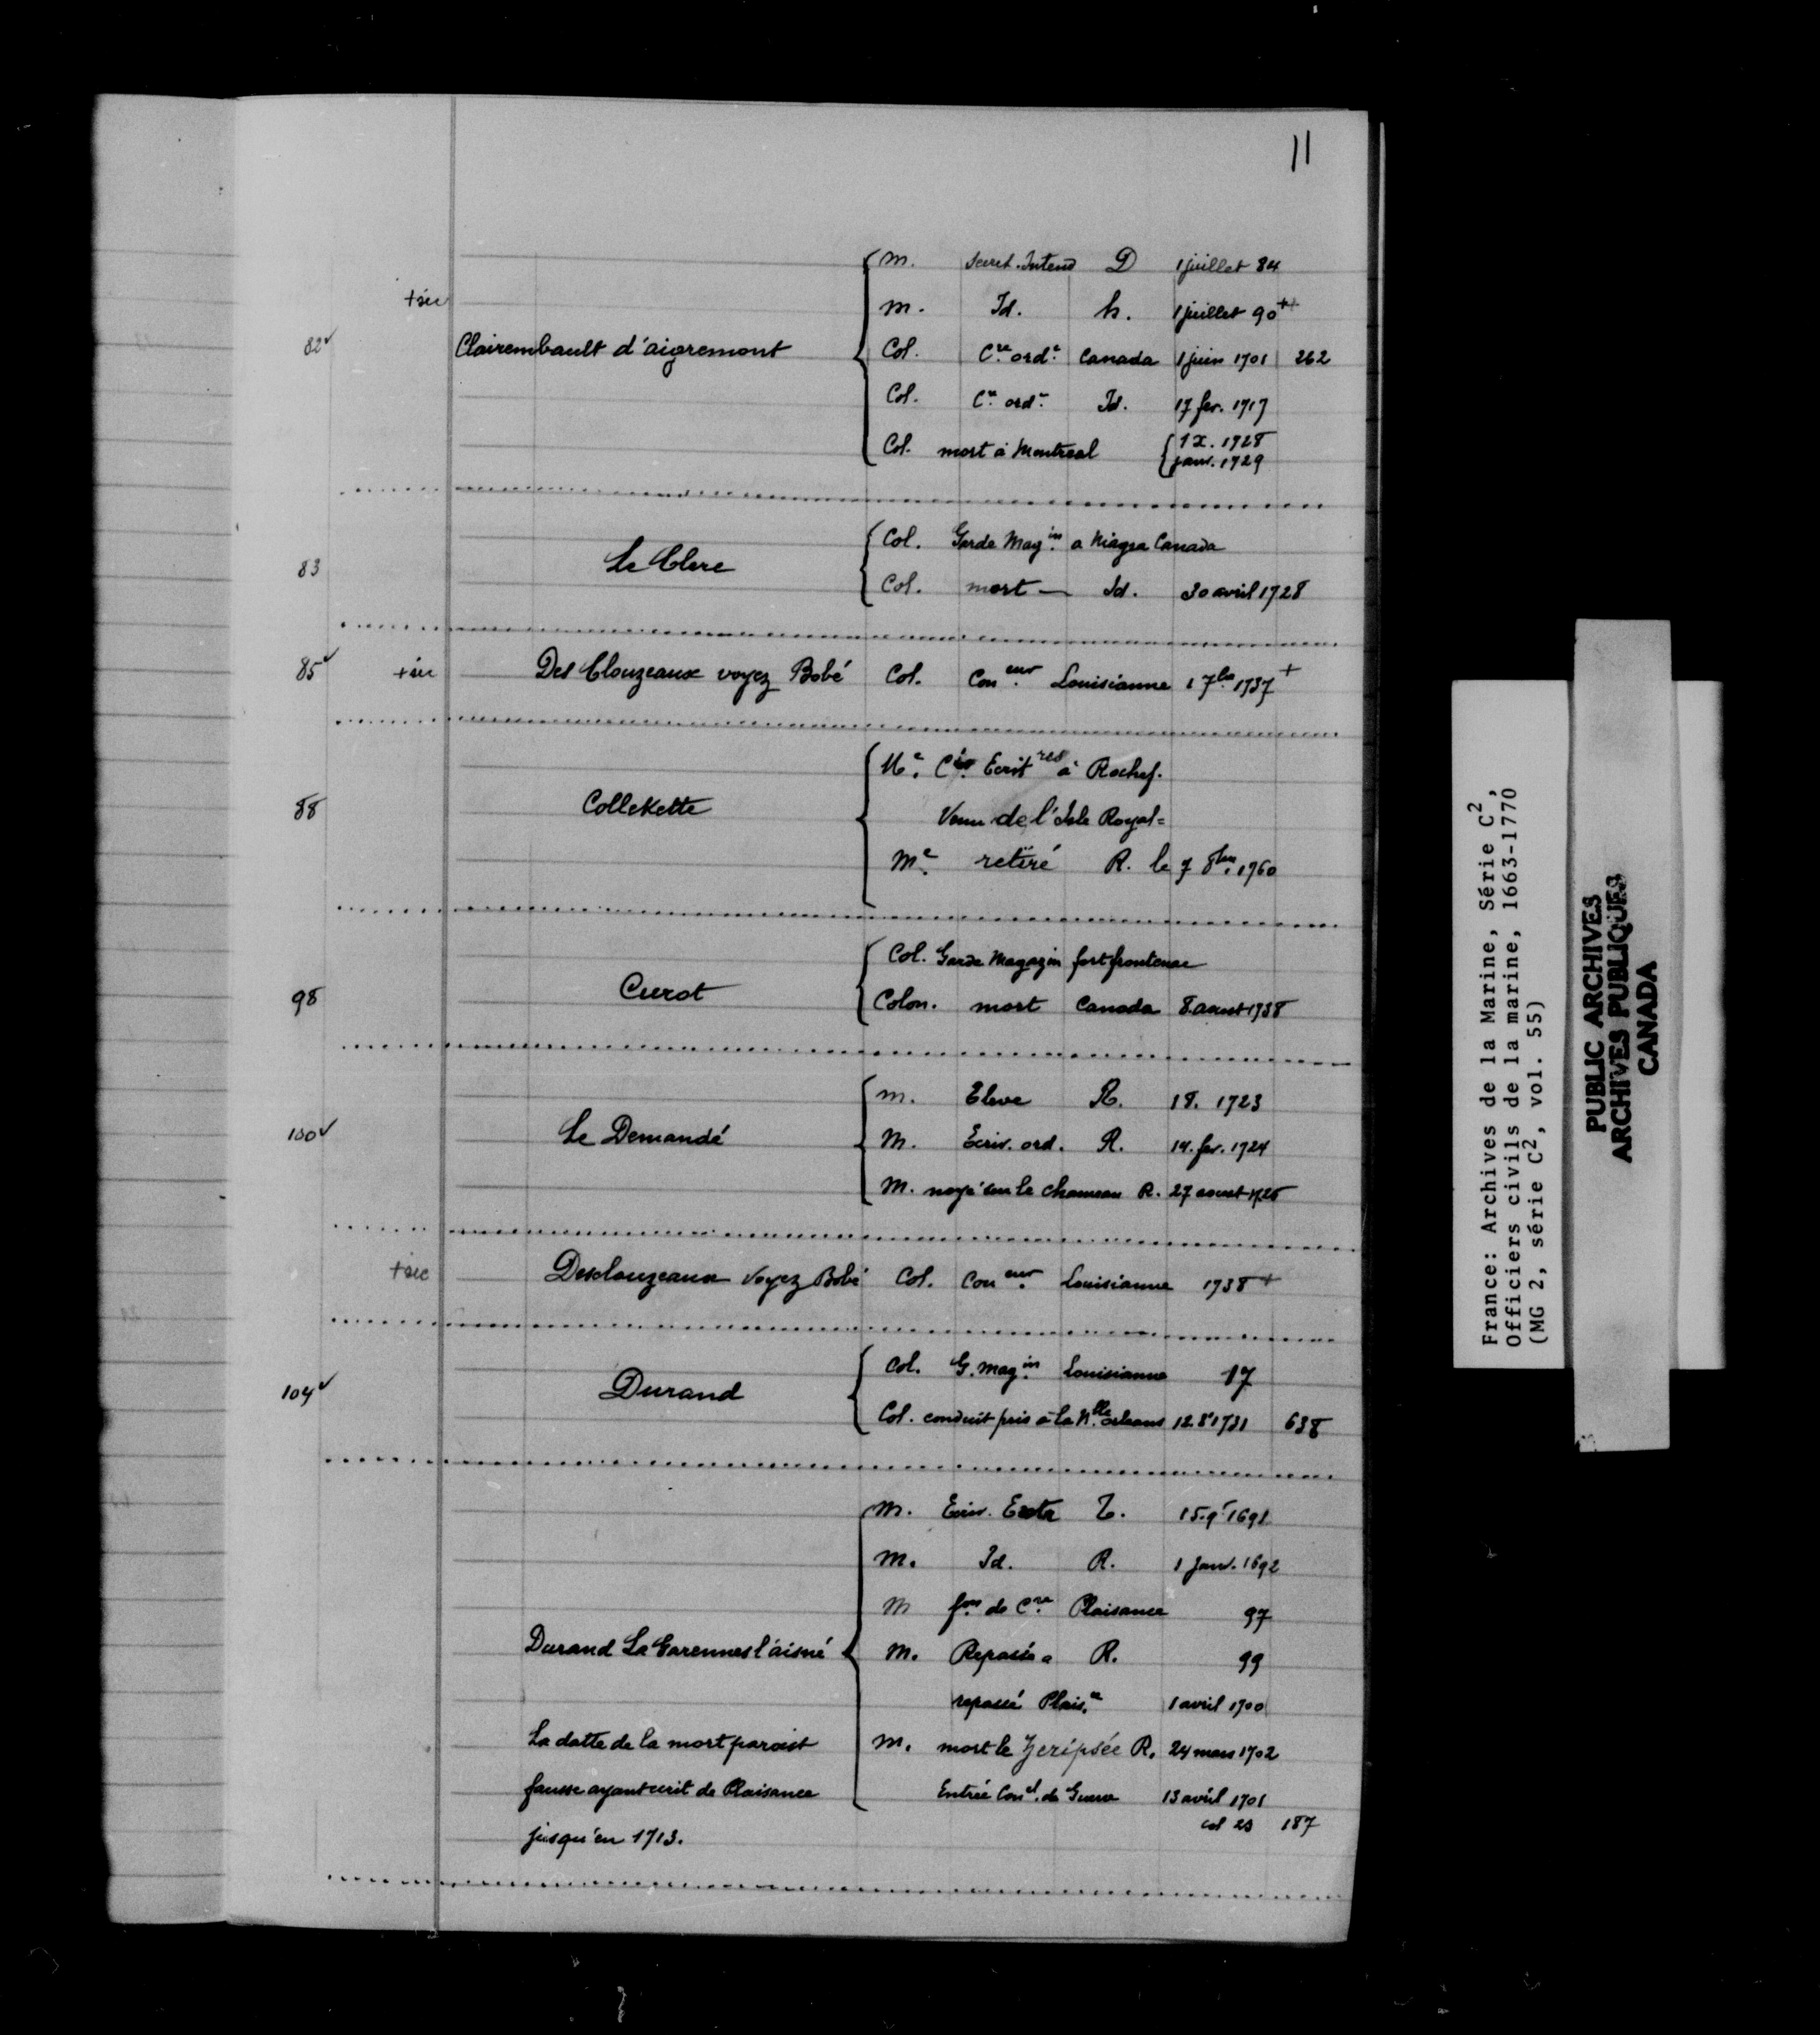 11
m. Secret. Intend D 1 juillet 84
+ sic
m. Id. h. 1 juillet 90 ++
82 ✓ Clairembault d'aigremont Col. Cre ordre Canada 1 juin 1701 262
Col. Cre ordre Id. 17 fev. 1717
Col. mort à Montreal { 1 X. 1728
janv. 1729
83 Le Clerc Col. Garde Magin a Niagra Canada
Col. mort — Id. 30 avril 1728
85 ✓ + sic Des Clouzeaux voyez Bobé Col. Coneur Louisianne 1 7bre 1737 +
88 Collekette Me. Cis Ecritres à Rochef.
Venu de l'Isle Royal=
Me. retiré R. le 7 8bre 1760
98 Curot Col. Garde Magazin fort frontenac
Colon. mort Canada 8. aoust 1738
100 ✓ Le Demandé m. Eleve R. 18. 1723
M. Ecriv. ord. R. 14. fev. 1724
M. noyé sur le chameau R. 27 aoust 1725
+ sic Desclouzeaux Voyez Bobé Col. Coneur Louisianne 1738 +
104 ✓ Durand Col. G. magin Louisianne 17
Col. conduit pris à la Nlle orleans 12. 8r 1731 638
m. Ecriv. Extr T. 15. 9r 1691
m. Id. R. 1 Janv. 1692
m fons de Cre Plaisance 97
Durand La Garennes l'aisné m. Repassé a R. 99
repassé Plaisce 1 avril 1700
La datte de la mort paroist m. mort le R. 24 mars 1702
fausse ayant ecrit de Plaisance Entrée Conel de Guerre 13 avril 1701
col 23 187
jusqu'en 1713.
France: Archives de la Marine, Série C2,
Officiers civils de la marine, 1663-1770
(MG 2, série C2, vol. 55)
PUBLIC ARCHIVES
ARCHIVES PUBLIQUES
CANADA